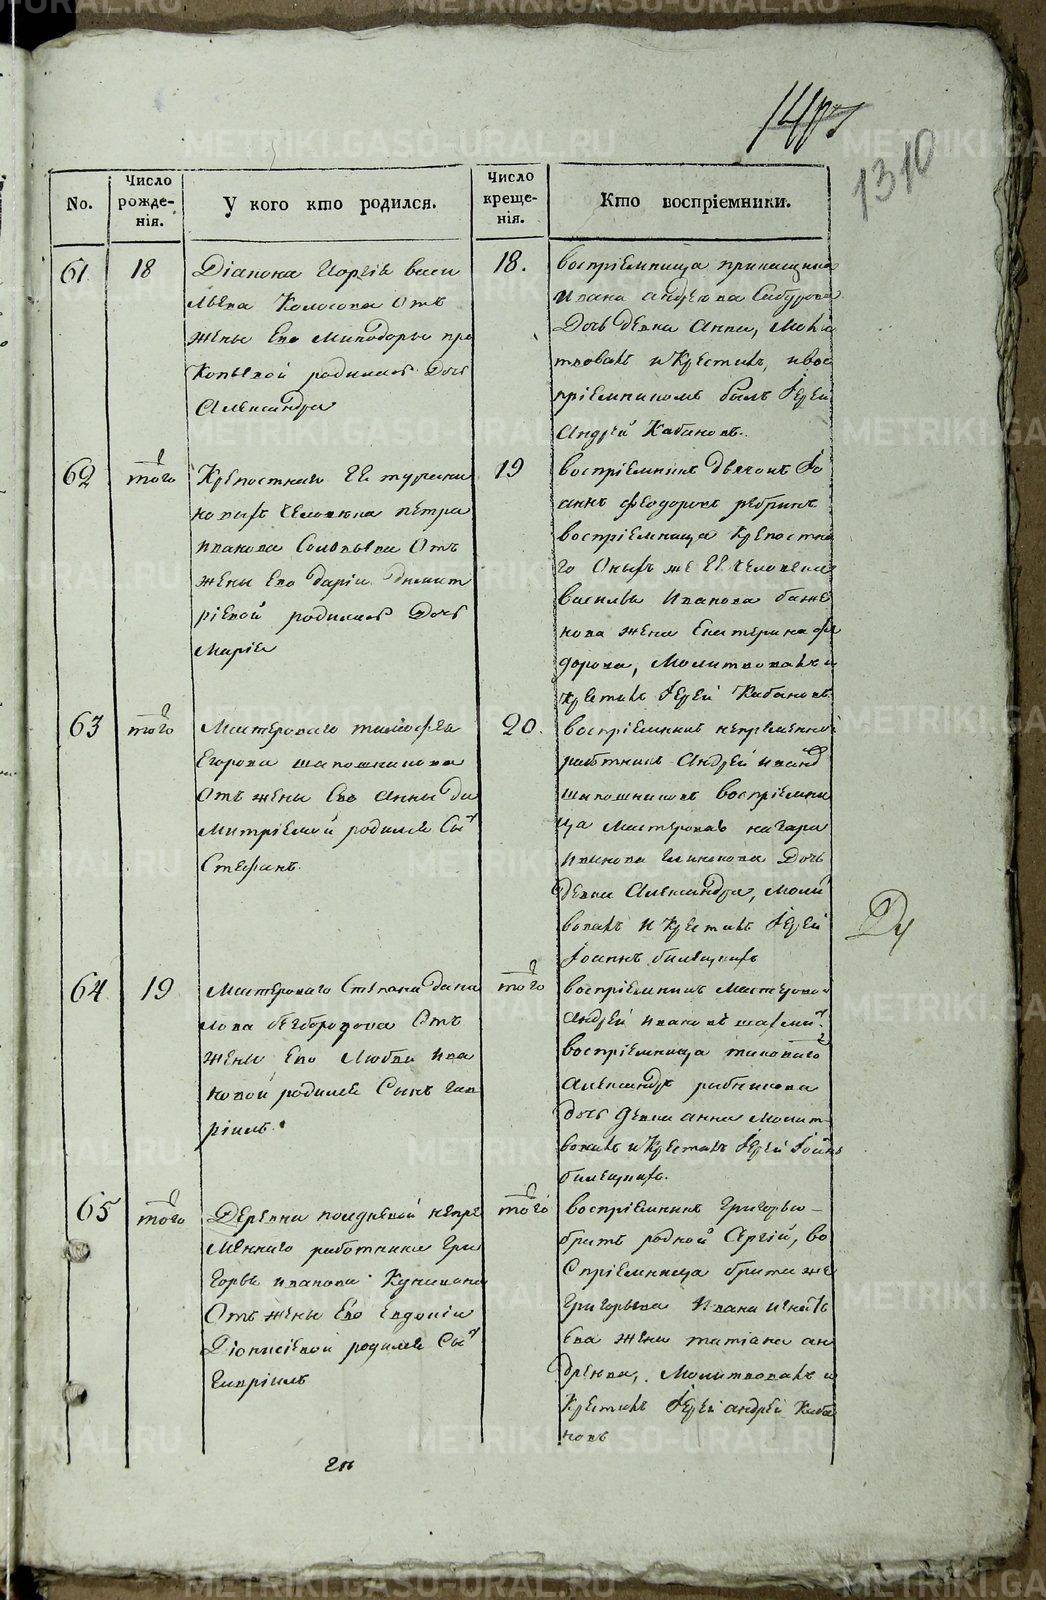 1310
No.
Число рожденія.
У кого кто родился.
Число крещенія.
Кто воспріемники.
61
18
Діакона Георгіе васи
льева Колосова Отъ
жены Его Минодоры про
Копьевой родилась Дочь
Александра
18.
воспріемница
Ивана андреева Сабурова
Дочь девка Анна, Моли
твовалъ и Крестилъ, и вос
пріемникомъ былъ Іерей
Андрей Кабановъ.
62
того
Крепостнаго ГГ турчани
новыхъ человека петра
иванова Соловьева Отъ
жены Его даріи димит
ріевой родилась Дочь
Маріе
19
воспріемникъ дьячокъ Іо
аннъ феодоровъ ребринъ
воспріемница Крепостна
го Оныхъ же ГГ человека
василья Иванова баже
нова жена Екатерина фе
дорова, Молитвовалъ и
Крестилъ Іерей Кабановъ.
63
того
Мастероваго тимофея
Егорова шапошникова
Отъ жены Его Анны ди
митріевой родился Сынъ
Стефанъ.
20.
воспріемникъ непременной
работникъ Андрей иванъ
шапошниковъ воспріемни
ца Мастероваго
иванова Дочь
девка Александра, молит
вовалъ и Крестилъ Іерей
Іоаннъ
64
19
Мастероваго Степана дани
лова безбородова Отъ
жены Его Любви ива
новой родился Сынъ гав
ріилъ.
того
воспріемникъ Мастеровой
Андрей ивановъ
воспріемница таковаго
Александра рыбникова
дочь девка анна Молит
вовалъ и Крестилъ Іерей Іоаннъ
65
того
Деревни полдневой непре
меннаго работника Гри
горья иванова
Отъ жены Его Евдокіи
Діонисіевой родился Сынъ
гавріилъ
того
воспріемникъ Григорью
братъ родной Сергій, во
спріемница брата же
григорьева Ивана игнать
ева жена татіана ан
дреева, Молитвовалъ и
Крестилъ Іерей андрей Каба
новъ